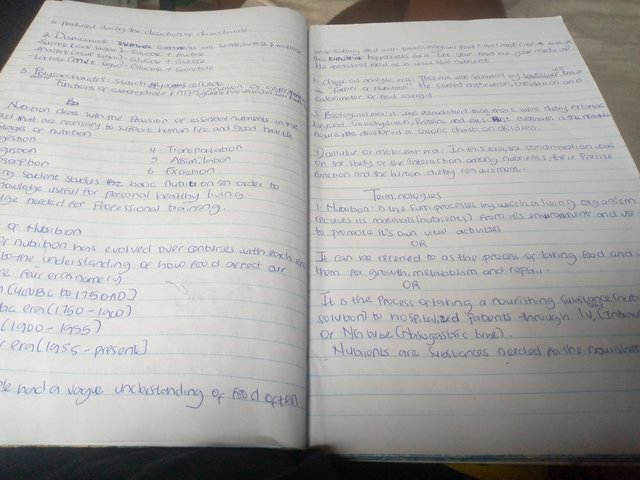 a. Produced during the
2. Disaccharide: The components are sucrose, lactose & maltose
Sucrose (cane sugar) - Glucose + fructose
Maltose (malt sugar) - Glucose + Glucose
Lactose (milk sugar) - Glucose + Galactose
3. Polysaccharides: Starch, glycogen, cellulose
Functions of Carbohydrate: ATP
Nutrition deals with the Provision of essential nutrients in the
that are necessary to support human life and good health
stages of nutrition
gestion 4. Transportation
gestion 5. Assimilation
sorption 6. Excretion
ing student studies the basic Nutrition in order to
knowledge useful for personal healthy living.
ge needed for Professional training.
of Nutrition
of nutrition has evolved over centuries with each era
to the understanding of how food affect our
are four eras namely.
(400BC to 1750AD)
era (1750 - 1900)
(1900 - 1955)
era (1955 - present)
had a vague understanding of food often
associating food with magical power and medicinal value
the said let your food be your medicine
he considered food as a universal nutrient
2. Chemical analytic era: This era was
Father of Nutrition. He studied respiration, oxidation and
calorimeter or food energy
3. Biological era: it was established that there were dietary
beyond carbohydrate, Protein, and fats.
he developed a caloric chart on children.
4) cellular or molecular era: In this era, the concentration was
on the study of the interaction among nutrients, their Precise
function and the human dietry requirement.
Terminologies
1. Nutrition: Is the sum processes by which a living organism
receives its materials (nutrients) from its environment and use
to promote it's own vital activities
OR
It can be referred to as the process of taking food and
them for growth, metabolism and repair.
OR
It is the process of taking a nourishing substance
solution) to hospitalized patients through IV,
or NG tube (Nasogastric tube).
Nutrients are substances needed for the nourishment